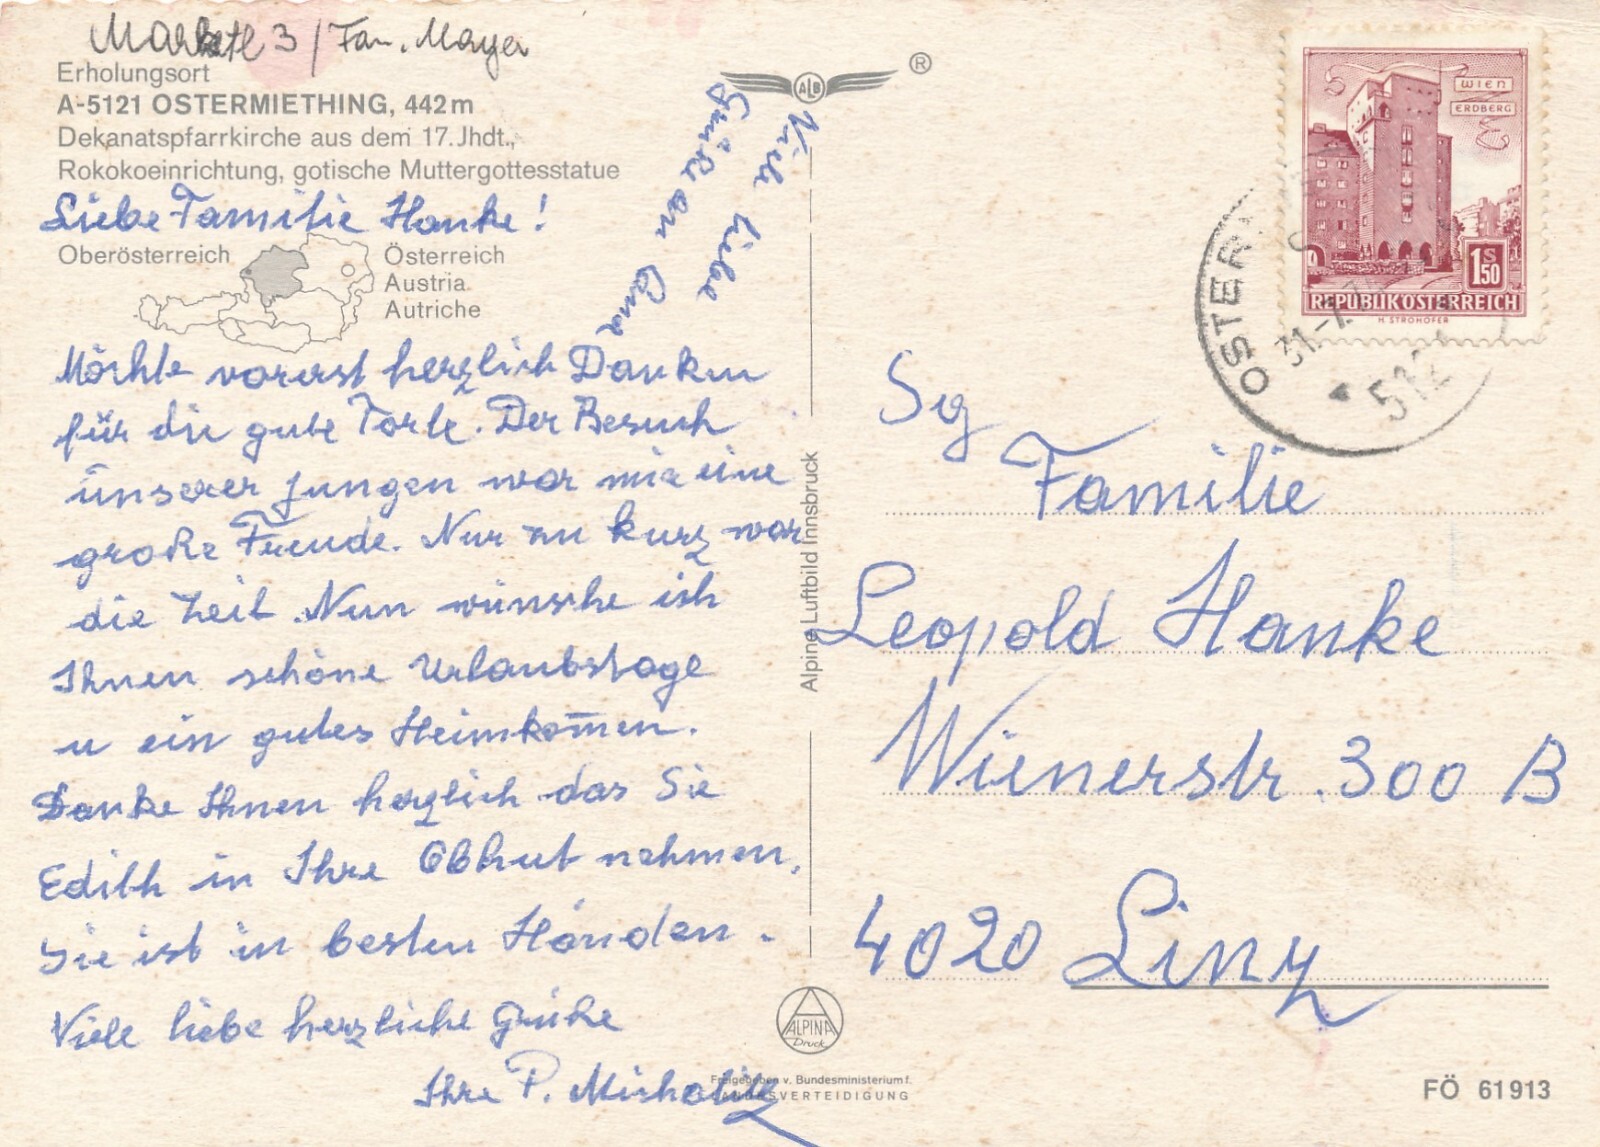 Marketl 3 / Fam. Mayer
Erholungsort
A-5121 OSTERMIETHING, 442 m
Dekanatspfarrkirche aus dem 17. Jhdt.,
Rokokoeinrichtung, gotische Muttergottesstatue
Liebe Familie Hanke!
Oberösterreich
Österreich
Austria
Autriche
Möchte vorerst herzlich Danken
für die gute Torte. Der Besuch
unserer Jungen war mir eine
große Freude. Nur zu kurz war
die Zeit. Nun wünsche ich
Ihnen schöne Urlaubstage
u ein gutes Heimkom̄en.
Danke Ihnen herzlich das Sie
Edith in Ihre Obhut nehmen.
Sie ist in besten Händen.
Viele liebe herzliche Grüße
Ihre P. Micholitz
Viele liebe
Grüße an
ALB
®
Alpine Luftbild Innsbruck
ALPINA
Druck
Freigegeben v. Bundesministerium f.
LANDESVERTEIDIGUNG
WIEN
ERDBERG
1 S 50
REPUBLIK ÖSTERREICH
H. STROHOFER
OSTER
31.-7.
512
Sg
Familie
Leopold Hanke
Wienerstr. 300 B
4020 Linz
FÖ 61913